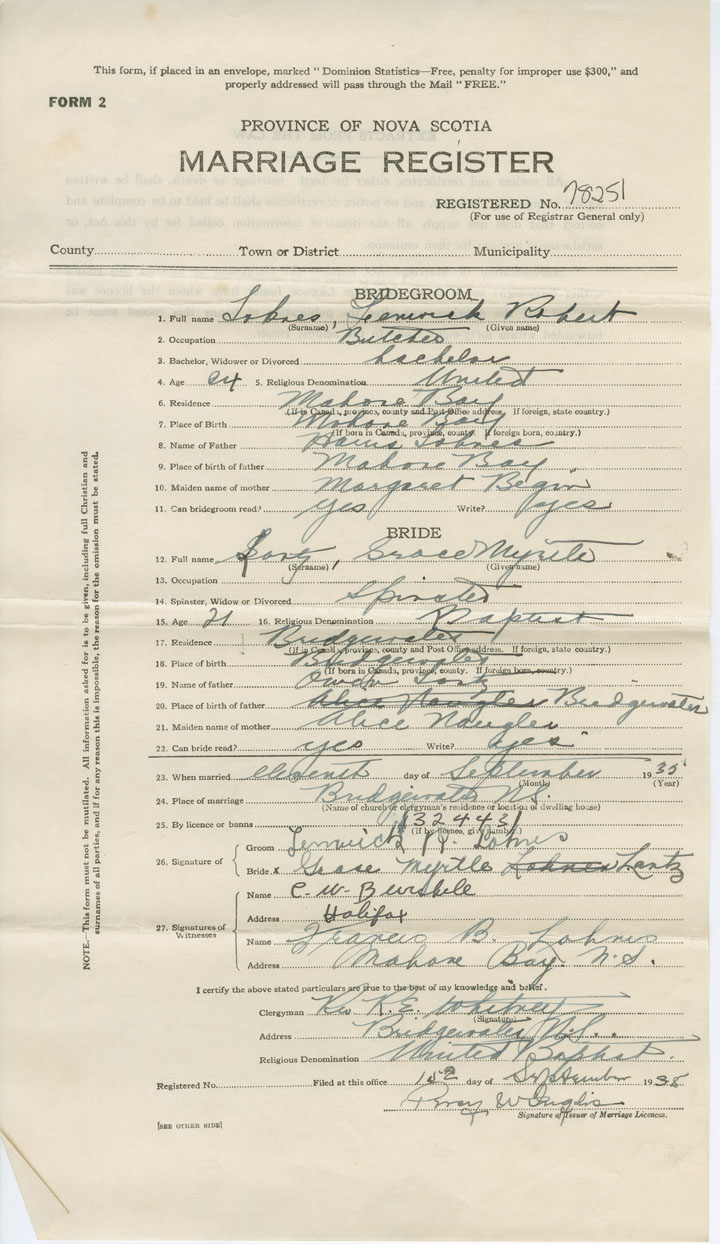 This form, if placed in an envelope, marked "Dominion Statistics—Free, penalty for improper use $300," and
properly addressed will pass through the Mail "FREE."
FORM 2
PROVINCE OF NOVA SCOTIA
MARRIAGE REGISTER
REGISTERED No. 78251
(For use of Registrar General only)
County Town or District Municipality
BRIDEGROOM
1. Full name Lohnes, Fenwick Robert
(Surname) (Given name)
2. Occupation Butcher
3. Bachelor, Widower or Divorced bachelor
4. Age 24 5. Religious Denomination United
6. Residence Mahone Bay
(If in Canada, province, county and Post Office address. If foreign, state country.)
7. Place of Birth Mahone Bay
(If born in Canada, province, county. If foreign born, country.)
8. Name of Father Lohnes
9. Place of birth of father Mahone Bay
10. Maiden name of mother Margaret Begin
11. Can bridegroom read? yes Write? yes
BRIDE
12. Full name Lantz, Grace Myrtle
(Surname) (Given name)
13. Occupation
14. Spinster, Widow or Divorced Spinster
15. Age 21 16. Religious Denomination Baptist
17. Residence Bridgewater
(If in Canada, province, county and Post Office address. If foreign, state country.)
18. Place of birth Bridgewater
(If born in Canada, province, county. If foreign born, country.)
19. Name of father Owen Lantz
20. Place of birth of father Alice Naugler Bridgewater
21. Maiden name of mother Alice Naugler
22. Can bride read? yes Write? yes
23. When married eleventh day of September 1935
(Month) (Year)
24. Place of marriage Bridgewater N.S.
(Name of church or clergyman's residence or location of dwelling house)
25. By licence or banns (32443)
(If by licence, give number.)
26. Signature of
Groom Fenwick R. Lohnes
Bride x Grace Myrtle Lohnes Lantz
27. Signatures of
Witnesses
Name C. W.
Address Halifax
Name Francis B. Lohnes
Address Mahone Bay N.S.
I certify the above stated particulars are true to the best of my knowledge and belief.
Clergyman Rev K.E. Whitney
(Signature)
Address Bridgewater, N.S.
Religious Denomination United Baptist.
Registered No. Filed at this office day of September 1935
Percy W Inglis
Signature of Issuer of Marriage Licences.
[SEE OTHER SIDE]
NOTE.—This form must not be mutilated. All information asked for is to be given, including full Christian and
surnames of all parties, and if for any reason this is impossible, the reason for the omission must be stated.